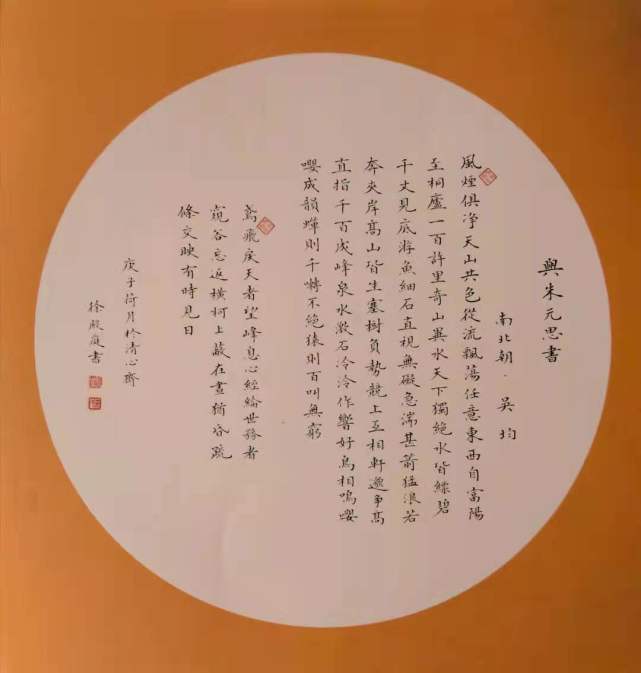 與朱元思書
南北朝·吴均
風煙俱净天山共色從流飄蕩任意東西自富陽
至桐廬一百許里奇山異水天下獨絶水皆縹碧
千丈見底游魚細石直視無礙急湍甚箭猛浪若
奔夾岸髙山皆生寒樹負勢競上互相軒邈争髙
直指千百成峰泉水激石泠泠作響好鳥相鳴嚶
嚶成韻蟬則千囀不絶猿則百叫無窮
鳶飛戾天者望峰息心經綸世務者
窺谷忘返横柯上蔽在晝猶昏疏
條交映有時見日
庚子荷月於清心齋
徐殿庭書